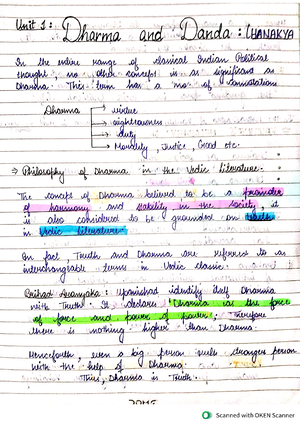 Unit 1: Dharma and Danda : CHANAKYA
In the entire range of classical Indian Political
thought, no other concept is as significant as
Dharma. This term has a no. of connotations
Dharma → virtue
→ righteousness
→ duty
→ Morality, Justice, Good etc.
⇒ Philosophy of Dharma in the Vedic Literature:-
The concept of Dharma believed to be a promoter
of harmony and stability in the society, it
is also considered to be grounded on truth
in Vedic literature.
In fact, Truth and Dharma are referred to as
interchangable terms in Vedic classic.
Brihad Aranyaka: Upanishad identify itself Dharma
with Truth. It declares "Dharma as the force
of force and power of power". Therefore
there nothing higher than Dharma.
Henceforth, even a big person rules stronger person
with the help of Dharma.
Thus, Dharma is Truth.
Scanned with OKEN Scanner